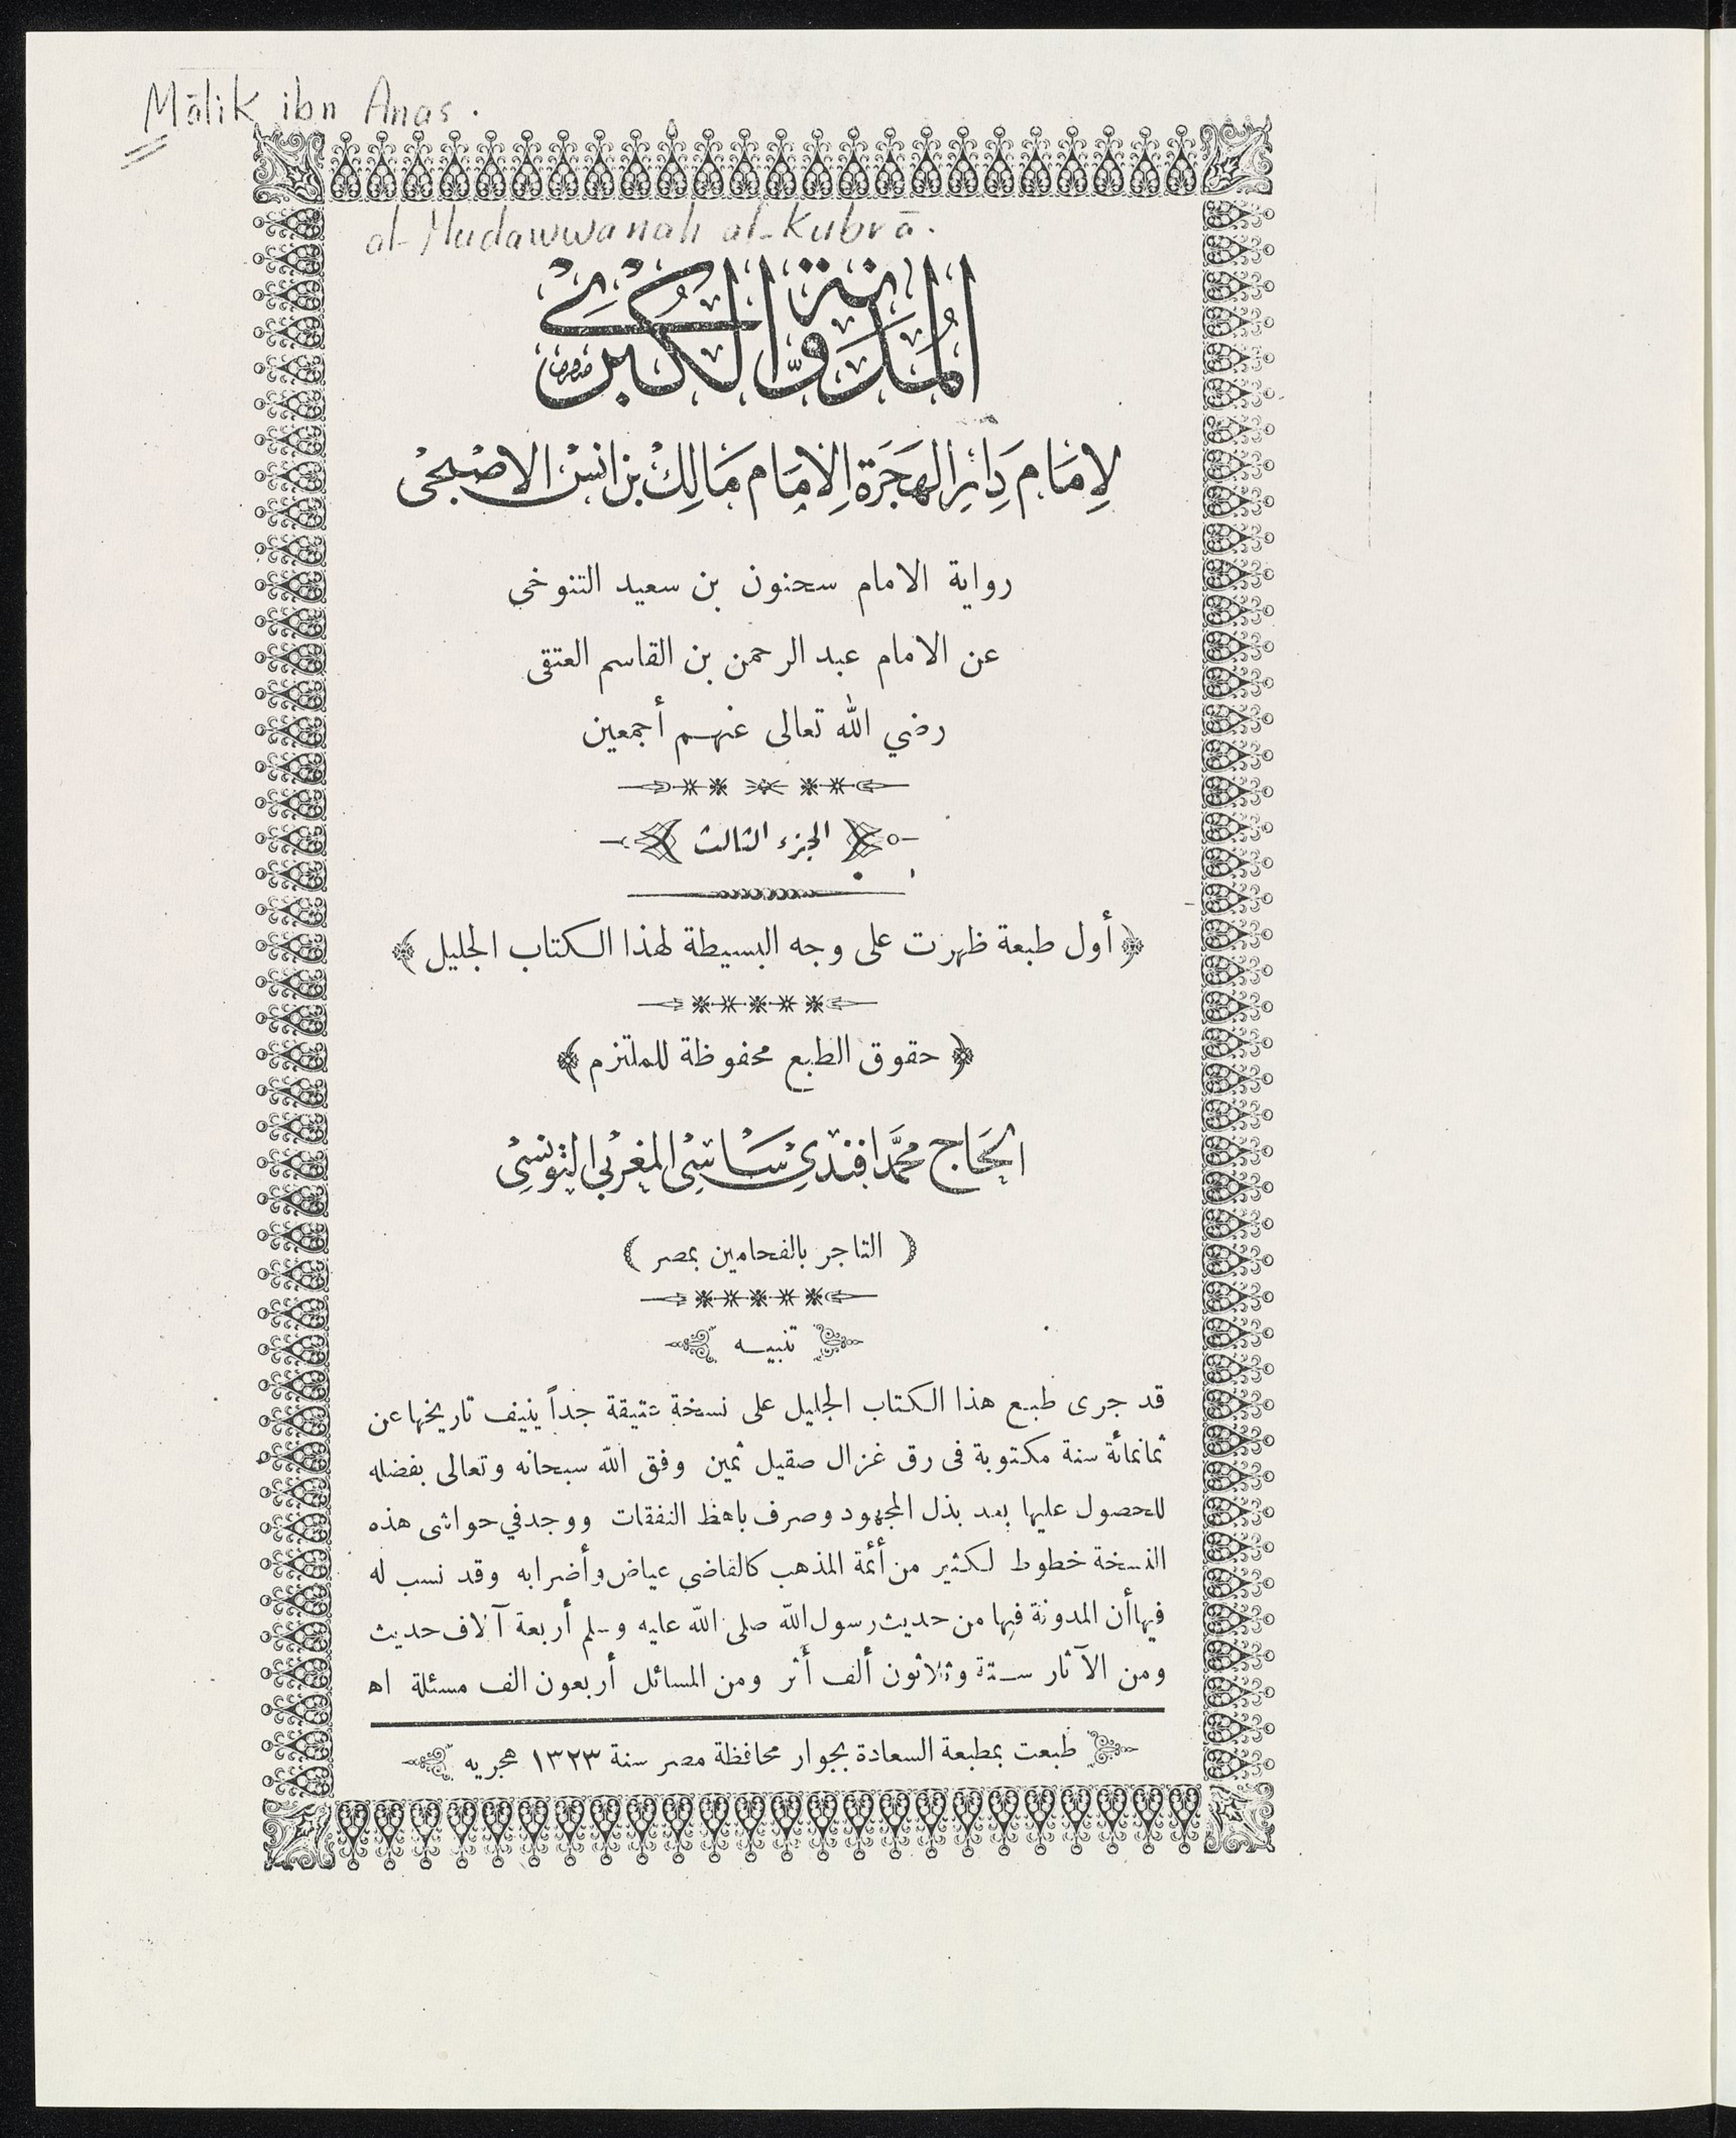 Mālik ibn Anas.
al-Mudawwanah al-Kubrā.
المُدَوَّنة الكُبْرى
لِإمَام دَارِ الهِجَرَة الِامَام مَالِكْ بن انسْ الاصْبحْى
رواية الامام سحنون بن سعيد التنوخي
عن الامام عبد الرحمن بن القاسم العتقى
رضي الله تعالى عنهم أجمعين
الجزء الثالث
﴿ أول طبعة ظهرت على وجه البسيطة لهذا الكتاب الجليل ﴾
﴿ حقوق الطبع محفوظة للملتزم ﴾
الحَاج محمَّد افندى سَاسِى المغربى التونسِى
( التاجر بالفحامين بمصر )
تنبيه
قد جرى طبع هذا الكتاب الجليل على نسخة عتيقة جداً ينيف تاريخها عن
ثمانمائة سنة مكتوبة فى رق غزال صقيل ثمين وفق الله سبحانه وتعالى بفضله
للحصول عليها بعد بذل المجهود وصرف باهظ النفقات ووجد في حواشى هذه
النسخة خطوط لكثير من أئمة المذهب كالقاضى عياض وأضرابه وقد نسب له
فيها أن المدونة فيها من حديث رسول الله صلى الله عليه وسلم أربعة آلاف حديث
ومن الآثار ستة وثلاثون ألف أثر ومن المسائل أربعون الف مسئلة اه
طبعت بمطبعة السعادة بجوار محافظة مصر سنة ١٣٢٣ هجريه